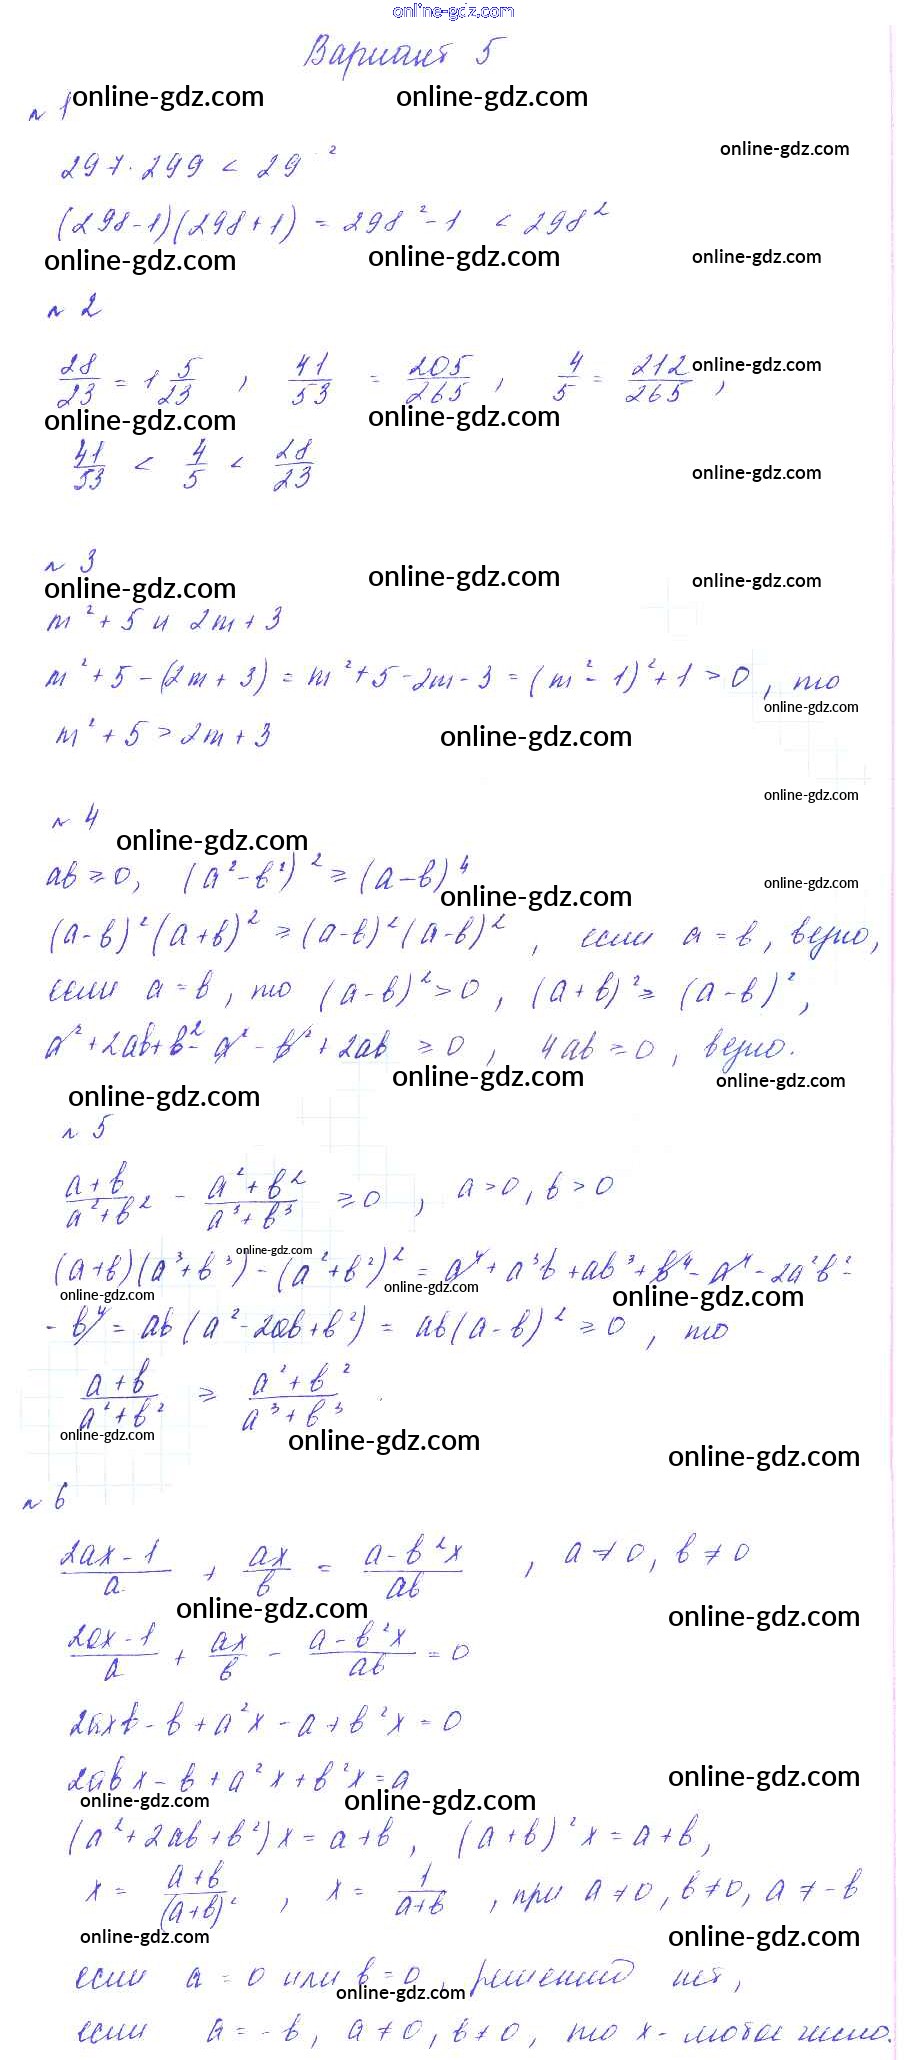 online-gdz.com
Вариант 5
online-gdz.com online-gdz.com
№ 1
online-gdz.com
297·299 < 29 ²
(298-1)(298+1) = 298²-1 < 298²
online-gdz.com online-gdz.com online-gdz.com
№ 2
28/23 = 1 5/23 , 41/53 = 205/265 , 4/5 = 212/265 ,
online-gdz.com
online-gdz.com online-gdz.com
41/53 < 4/5 < 28/23
online-gdz.com
№ 3
online-gdz.com online-gdz.com online-gdz.com
m²+5 и 2m+3
m²+5-(2m+3) = m²+5-2m-3 = (m²-1)²+1 > 0 , то
online-gdz.com
m²+5 > 2m+3
online-gdz.com
online-gdz.com
№ 4
online-gdz.com
ав ≥ 0, (а²-в²)² ≥ (а-в)⁴
online-gdz.com online-gdz.com
(а-в)²(а+в)² ≥ (а-в)²(а-в)² , если а = в, верно,
если а = в, то (а-в)² > 0 , (а+в)² ≥ (а-в)²,
а²+2ав+в²-а²-в²+2ав ≥ 0 , 4ав ≥ 0 , верно.
online-gdz.com online-gdz.com online-gdz.com
№ 5
а+в/а²+в² - а²+в²/а³+в³ ≥ 0 , а > 0, в > 0
online-gdz.com
(а+в)(а³+в³)-(а²+в²)² = а⁴+а³в+ав³+в⁴-а⁴-2а²в²-
online-gdz.com online-gdz.com online-gdz.com
-в⁴ = ав(а²-2ав+в²) = ав(а-в)² ≥ 0 , то
а+в/а²+в² ≥ а²+в²/а³+в³
online-gdz.com online-gdz.com online-gdz.com
№ 6
2ах-1/а + ах/в = а-в²х/ав , а≠0, в≠0
online-gdz.com online-gdz.com
2ах-1/а + ах/в - а-в²х/ав = 0
2ахв-в+а²х-а+в²х=0
2авх-в+а²х+в²х=а
online-gdz.com
online-gdz.com online-gdz.com
(а²+2ав+в²)х=а+в, (а+в)²х=а+в,
х = а+в/(а+в)² , х = 1/а+в , при а≠0, в≠0, а≠-в
online-gdz.com online-gdz.com
если а=0 или в=0, решений нет,
online-gdz.com
если а=-в, а≠0, в≠0, то х-любое число.